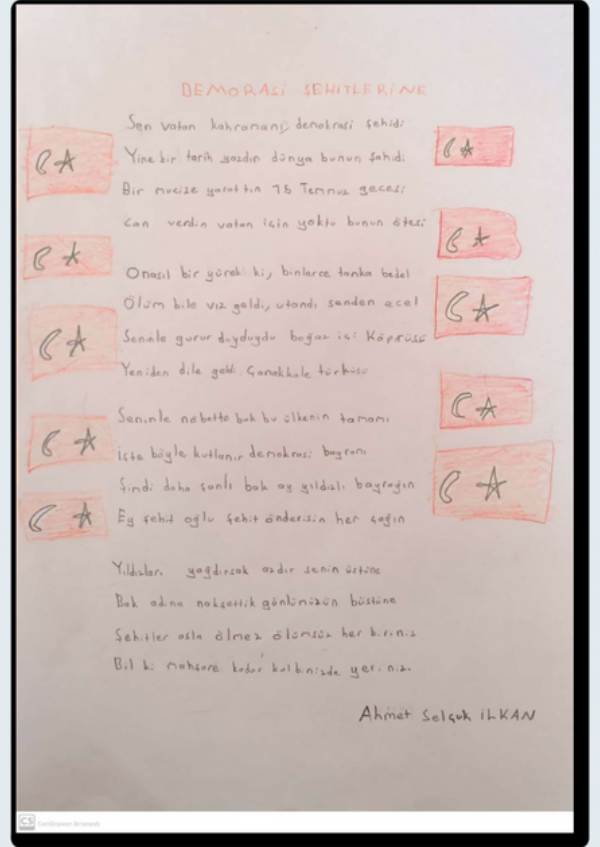 DEMORASİ ŞEHİTLERİNE
Sen vatan kahramanı, demokrasi şehidi
Yine bir tarih yazdın dünya bunun şahidi
Bir mucize yarattın 15 Temmuz gecesi
Can verdin vatan için yoktu bunun ötesi
Onasıl bir yürek ki, binlerce tanka bedel
Ölüm bile vız geldi, utandı senden ecel
Seninle gurur duyduğu boğaz içi Köprüsü
Yeniden dile geldi Çanakkale türküsü
Seninle nöbette bak bu ülkenin tamamı
İşte böyle kutlanır demokrasi bayramı
Şimdi daha şanlı bak ay yıldızlı bayrağın
Ey şehit oğlu şehit önderisin her çağın
Yıldızları yağdırsak azdır senin üstüne
Bak adına nakşettik gönlümüzün büstüne
Şehitler asla ölmez ölümsüz her biriniz
Bil ki mahşere kadar kalbimizde yeriniz.
Ahmet Selçuk İLKAN
CS CamScanner ile tarandı